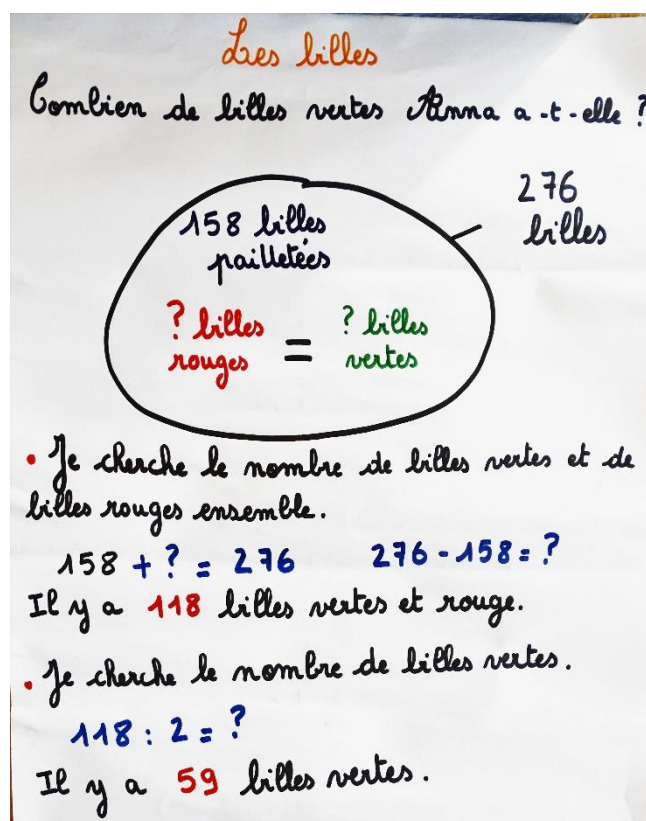 Les billes
Combien de billes vertes Anna a-t-elle ?
276
billes
158 billes
pailletées
? billes
rouges
=
? billes
vertes
• Je cherche le nombre de billes vertes et de
billes rouges ensemble.
158 + ? = 276 276 - 158 = ?
Il y a 118 billes vertes et rouge.
• Je cherche le nombre de billes vertes.
118 : 2 = ?
Il y a 59 billes vertes.